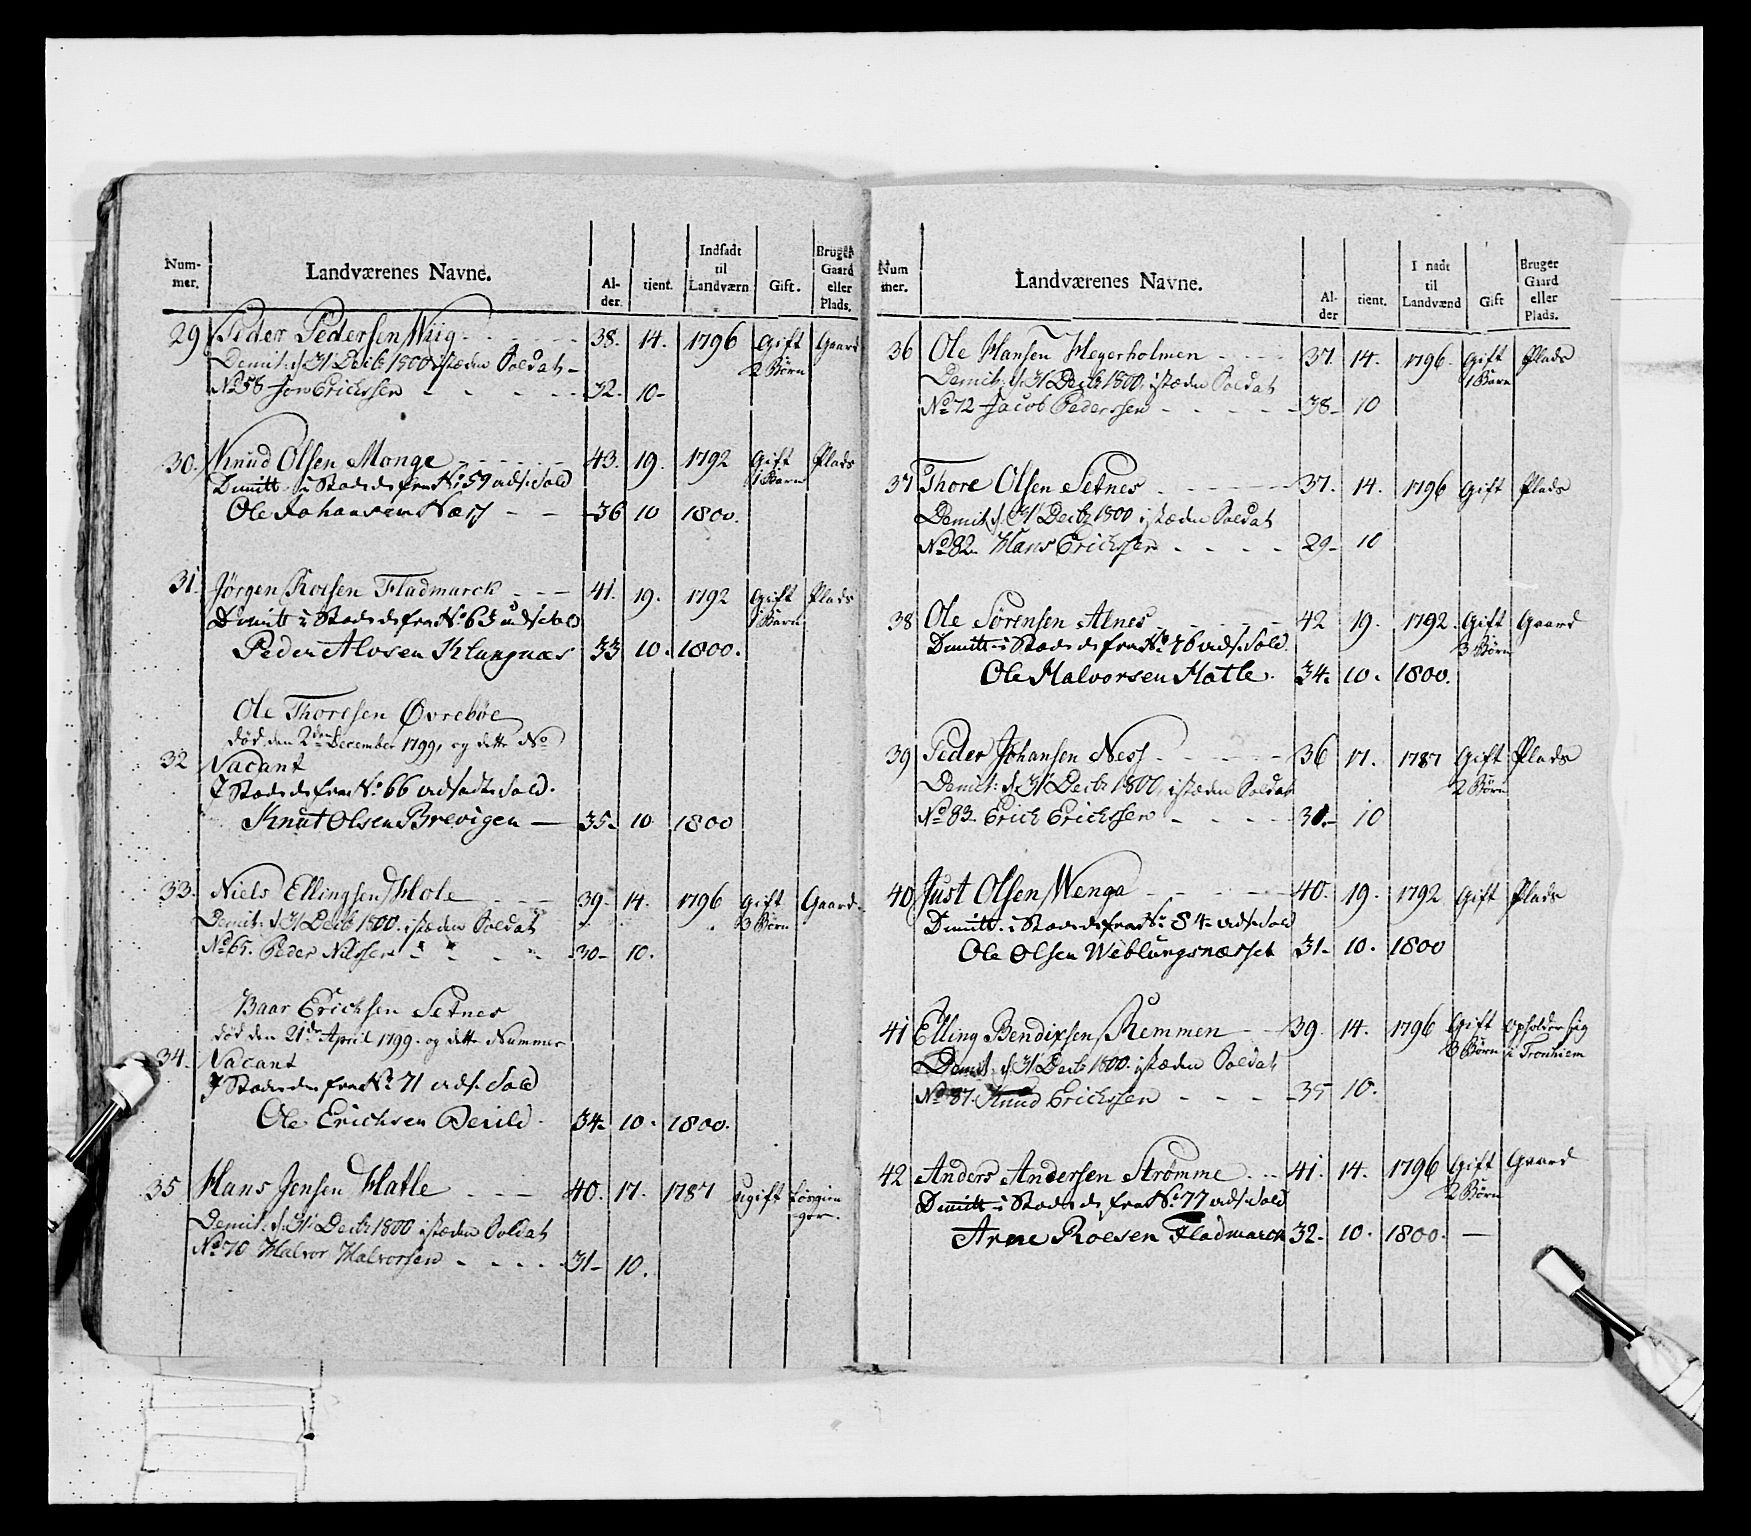 Num-
mer.
Landværenes Navne.
Al-
der.
tient.
Indsadt
til
Landværn
Gift.
Bruger
Gaard
eller
Plads.
29 Peder Pedersen Wiig 38. 14. 1796 Gift Gaard
Demit: d: 31 Decbr 1800 istæden Soldat 2 Børn
No 58 Jon Erichssen 32. 10
30. Knud Olsen Monge 43. 19. 1792 Gift Plads
Dimitt i Stæds des fra No 59 uds: Sold 1 Barn
Ole Johansen Næss 36 10 1800.
31. Jørgen Roesen Fladmarck 41. 19. 1792 Gift Plads
Dimitt i Stæds des fra No 63 uds: Sold 1 Barn
Peder Alvsen Klungnæs 33 10. 1800.
Ole Thoresen Øvrebøe
død den 2den December 1799, og dette No
32 Vacant
I Stæds des fra No 66 udsadt Sold.
Knut Olsen Brevigen 35. 10 1800
33. Niels Ellingsen Hole 39. 14. 1796 Gift Gaard.
Demit: d: 31 Decbr 1800. istæden Soldat 3 Børn
No 67. Peder Nilssen 30 10.
Baar Erichsen Setnes
død den 21de April 1799. og dette Nummer
34. Vacant
I Stæds des fra No 71 uds. Sold
Ole Erichsen Devild 34. 10. 1800.
35 Hans Jensen Hatle 40. 17. 1787 ugift
Demit: d: 31 Decbr 1800 istæden Soldat
No 70 Halvor Halvorsen 31 10.
Num
mer.
Landværenes Navne.
Al-
der
tient.
I nadt
til
Landvænd
Gift
Bruger
Gaard
eller
Plads.
36 Ole Hansen Heyerholmen 37. 14. 1796. Gift Plads
Demit: d: 31 Decbr 1800. istæden Soldat 1 Barn
No 72 Jacob Pederssen 38 10
37 Thore Olsen Setnes 37. 14. 1796 Gift Plads
Demit d: 31 Decbr 1800 istæden Soldat
No 82. Hans Erichssen 29 10
38 Ole Sørensen Alnes 42 19. 1792. Gift Gaard
Dimitt i Stæds des fra No 76 uds. Sold. 3 Børn
Ole Halvorsen Hatle. 34. 10. 1800.
39 Peder Johansen Ness 36 17. 1787 Gift Plads
Demit: d: 31 Decbr 1800, istæden Soldat 2 Børn
No 83. Erich Erichssen 31. 10
40 Just Olsen Wenga 40. 19. 1792 Gift Plads
Dimitt. i Stæds des fra No 84 uds. Sold
Ole Olsen Weblungsnæsset 31 10. 1800
41 Elling Bendixsen Remmen 39. 14. 1796 Gift Opholder Sig
Demit: d: 31 Decbr 1800. istæden Soldat 3 Børn i Tronhiem
No 87. Knud Erichssen 35 10.
42 Anders Andersen Strømme 41. 14. 1796 Gift Gaard
Dimitt i Stæds des fra No 77 uds. Sold 2 Børn
Arne Roesen Fladmarck 32. 10. 1800.